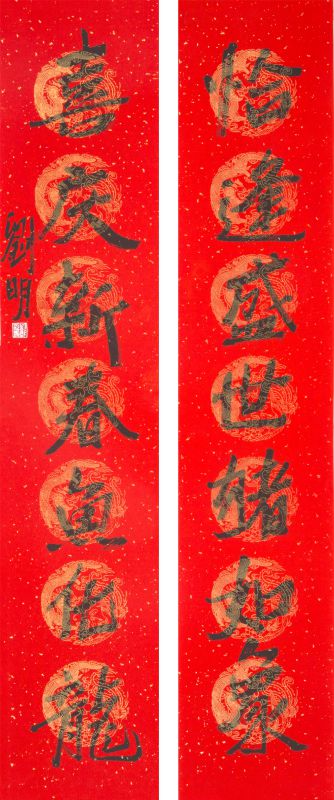 恰逢盛世猪如象
喜庆新春鱼化龍
劉明